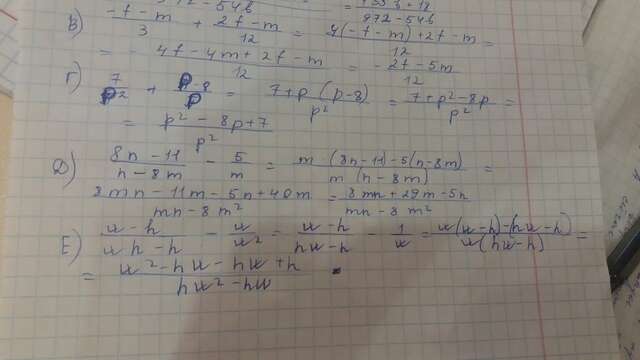 972-54b
В) (-t-m)/3 + (2t-m)/12 = (4(-t-m)+2t-m)/12 =
= (-4t-4m+2t-m)/12 = (-2t-5m)/12
Г) 7/p² + (p-8)/p = (7+p(p-8))/p² = (7+p²-8p)/p² =
= (p²-8p+7)/p²
Д) (8n-11)/(n-8m) - 5/m = (m·(8n-11)-5(n-8m))/(m(n-8m)) =
(8mn-11m-5n+40m)/(mn-8m²) = (8mn+29m-5n)/(mn-8m²)
Е) (u-h)/(uh-h) - u/u² = (u-h)/(hu-h) - 1/u = (u(u-h)-(hu-h))/(u(hu-h)) =
= (u²-hu-hu+h)/(hu²-hu)